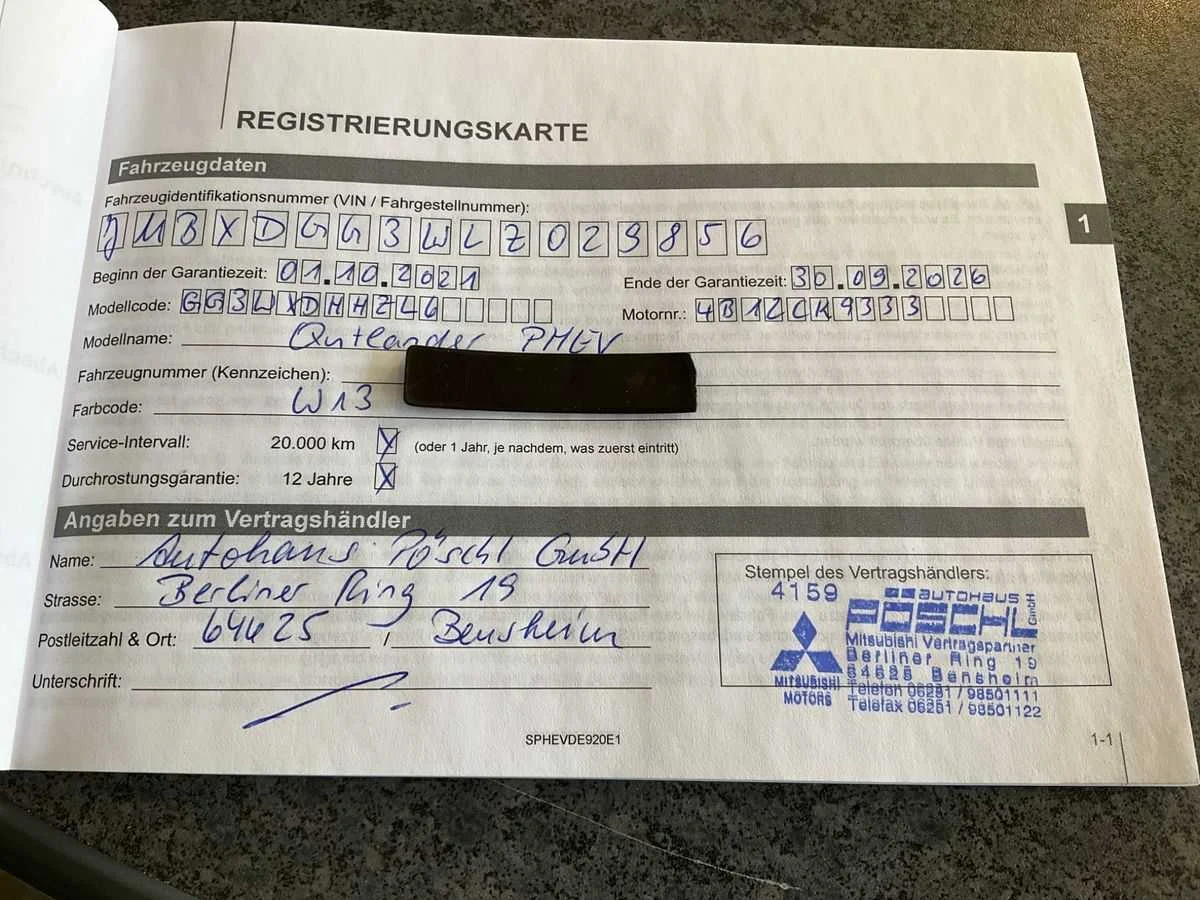 REGISTRIERUNGSKARTE
Fahrzeugdaten
Fahrzeugidentifikationsnummer (VIN / Fahrgestellnummer):
JMBXDGG3WLZ029856
1
Beginn der Garantiezeit: 01.10.2021 Ende der Garantiezeit: 30.09.2026
Modellcode: GG3WXDHHZL6 Motornr.: 4B12CK9333
Modellname: Outlander PHEV
Fahrzeugnummer (Kennzeichen):
Farbcode: W13
Service-Intervall: 20.000 km X (oder 1 Jahr, je nachdem, was zuerst eintritt)
Durchrostungsgarantie: 12 Jahre X
Angaben zum Vertragshändler
Name: Autohaus Pöschl GmbH
Strasse: Berliner Ring 19
Postleitzahl & Ort: 64625 / Bensheim
Unterschrift:
Stempel des Vertragshändlers:
4159
AUTOHAUS
PÖSCHL GmbH
Mitsubishi Vertragspartner
Berliner Ring 19
64625 Bensheim
Telefon 06251 / 98501111
Telefax 06251 / 98501122
MITSUBISHI
MOTORS
SPHEVDE920E1
1-1